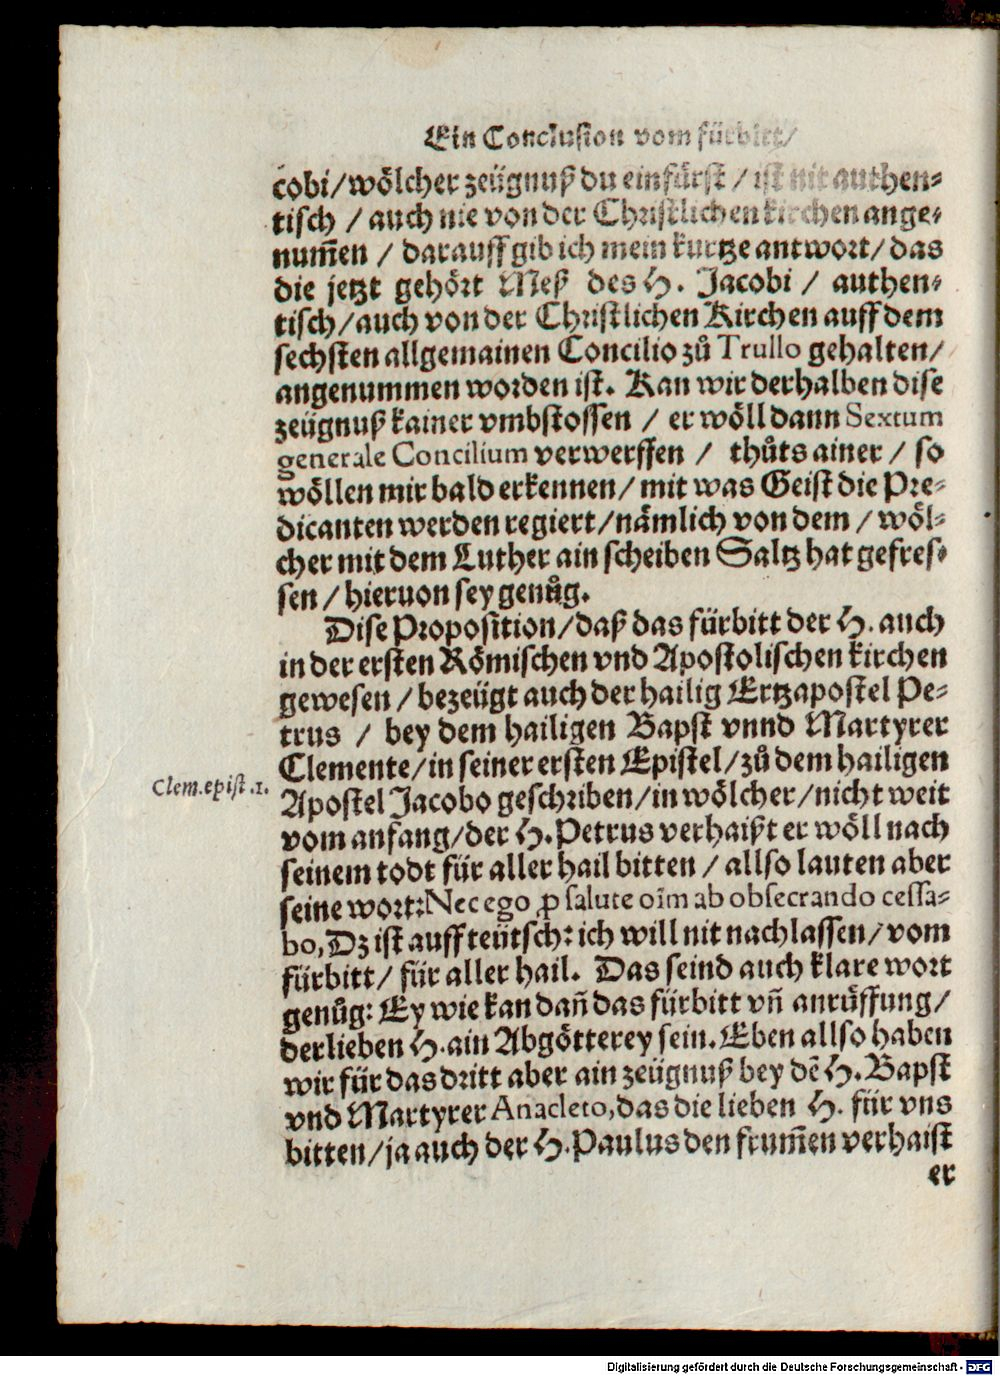 Ein Conclusion vom fürbitt/
cobi/wölcher zeügnuß du einfürst / ist nit authen⸗
tisch / auch nie von der Christlichen kirchen ange⸗
num̃en / darauff gib ich mein kurtze antwort/das
die jetzt gehört Meß des H. Jacobi / authen⸗
tisch/auch von der Christlichen Kirchen auff dem
sechsten allgemainen Concilio zů Trullo gehalten/
angenummen worden ist. Kan wir derhalben dise
zeügnuß kainer vmbstossen / er wöll dann Sextum
generale Concilium verwerffen / thůts ainer / so
wöllen mir bald erkennen/mit was Geist die Pre⸗
dicanten werden regiert/nämlich von dem / wöl⸗
cher mit dem Luther ain scheiben Saltz hat gefres⸗
sen / hieruon sey genůg.
Dise Proposition/daß das fürbitt der H. auch
in der ersten Römischen vnd Apostolischen kirchen
gewesen / bezeügt auch der hailig Ertzapostel Pe⸗
trus / bey dem hailigen Bapst vnnd Martyrer
Clemente/in seiner ersten Epistel/zů dem hailigen
Clem.epist.1.
Apostel Jacobo geschriben/in wölcher/nicht weit
vom anfang/der H.Petrus verhaißt er wöll nach
seinem todt für aller hail bitten / allso lauten aber
seine wort:Nec ego ꝓ salute oīm ab obsecrando cessa⸗
bo,Dz ist auff teütsch: ich will nit nachlassen/vom
fürbitt/ für aller hail. Das seind auch klare wort
genůg: Ey wie kan dañ das fürbitt vñ anrüffung/
der lieben H.ain Abgötterey sein. Eben allso haben
wir für das dritt aber ain zeügnuß bey dẽ H.Bapst
vnd Martyrer Anacleto,das die lieben H. für vns
bitten/ja auch der H.Paulus den frum̃en verhaist
er
Digitalisierung gefördert durch die Deutsche Forschungsgemeinschaft - DFG